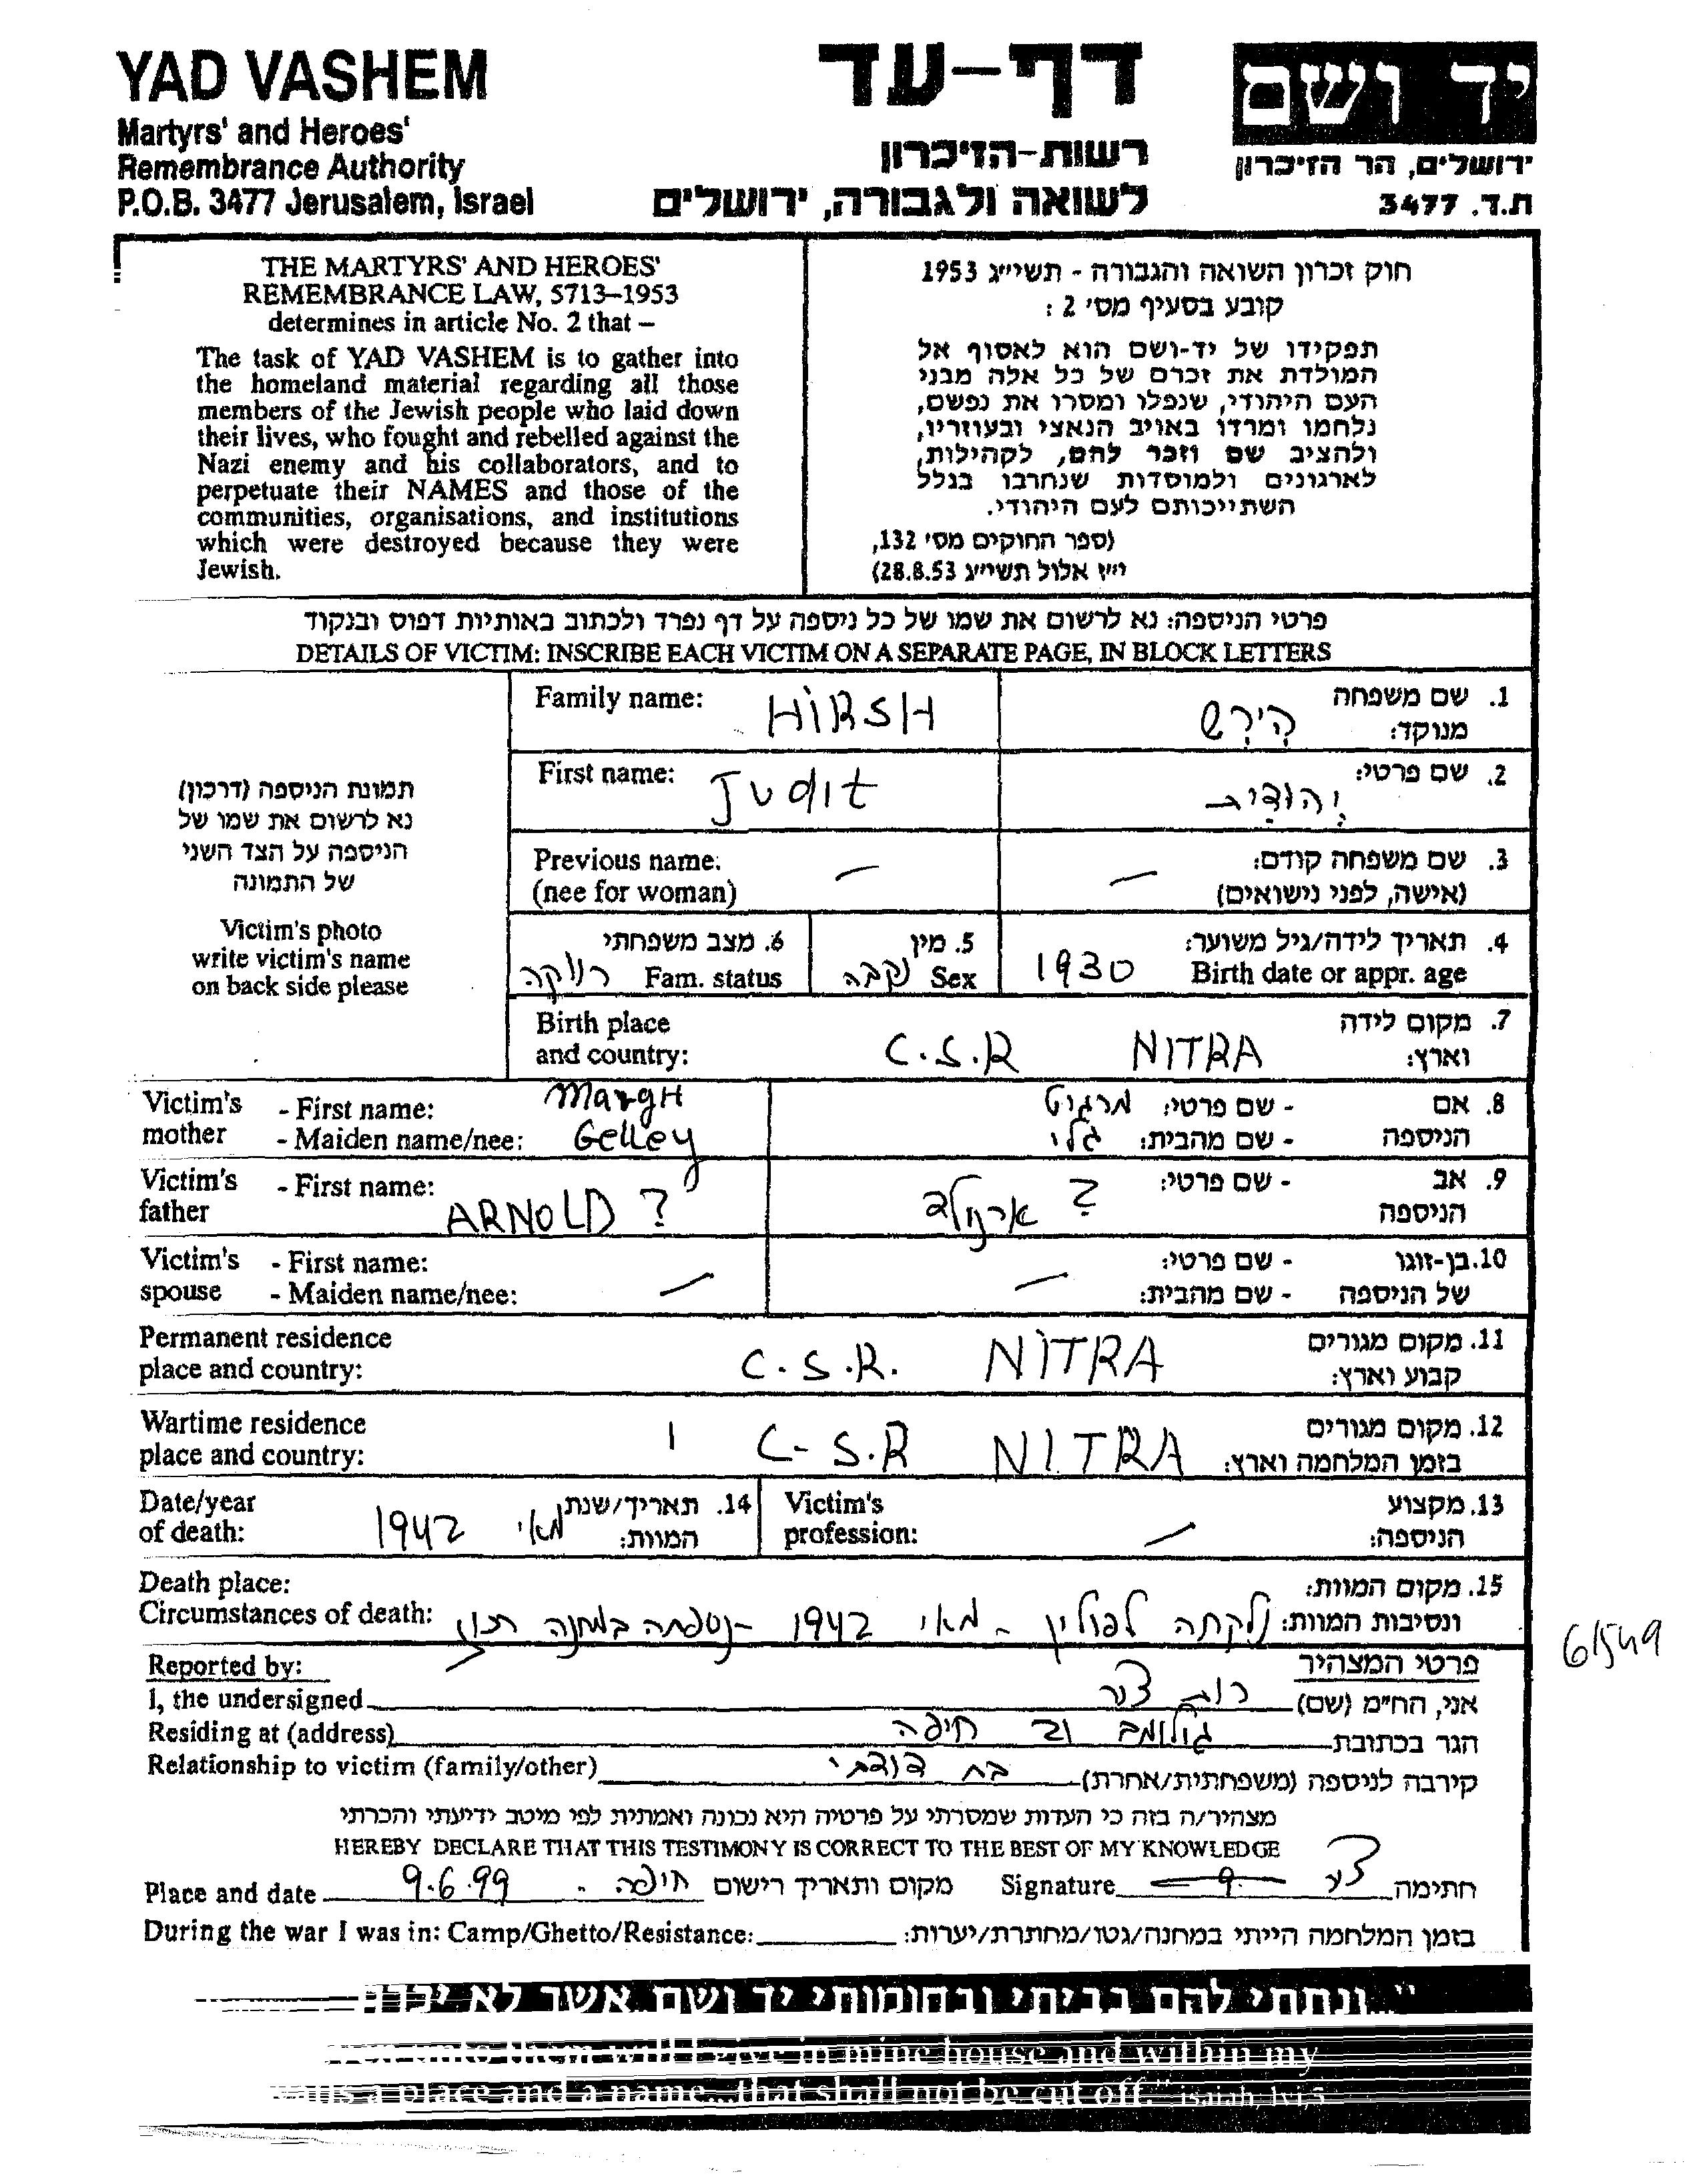 YAD VASHEM
Martyrs' and Heroes'
Remembrance Authority
P.O.B. 3477 Jerusalem, Israel
דף-עד
רשות-הזיכרון
לשואה ולגבורה, ירושלים
יד ושם
ירושלים, הר הזיכרון
ת.ד. 3477
THE MARTYRS' AND HEROES'
REMEMBRANCE LAW, 5713–1953
determines in article No. 2 that –
The task of YAD VASHEM is to gather into
the homeland material regarding all those
members of the Jewish people who laid down
their lives, who fought and rebelled against the
Nazi enemy and his collaborators, and to
perpetuate their NAMES and those of the
communities, organisations, and institutions
which were destroyed because they were
Jewish.
חוק זכרון השואה והגבורה - תשי״ג 1953
קובע בסעיף מס׳ 2 :
תפקידו של יד-ושם הוא לאסוף אל
המולדת את זכרם של כל אלה מבני
העם היהודי, שנפלו ומסרו את נפשם,
נלחמו ומרדו באויב הנאצי ובעוזריו,
ולהציב שם וזכר להם, לקהילות,
לארגונים ולמוסדות שנחרבו בגלל
השתייכותם לעם היהודי.
(ספר החוקים מס׳ 132,
י״ז אלול תשי״ג 28.8.53)
פרטי הניספה: נא לרשום את שמו של כל ניספה על דף נפרד ולכתוב באותיות דפוס ובנקוד
DETAILS OF VICTIM: INSCRIBE EACH VICTIM ON A SEPARATE PAGE, IN BLOCK LETTERS
תמונת הניספה (דרכון)
נא לרשום את שמו של
הניספה על הצד השני
של התמונה
Victim's photo
write victim's name
on back side please
Family name: HIRSH הירש 1. שם משפחה
מנוקד:
First name: Judit יהודית 2. שם פרטי:
Previous name: – – 3. שם משפחה קודם:
(nee for woman) (אישה, לפני נישואים)
6. מצב משפחתי 5. מין 4. תאריך לידה/גיל משוער:
רווקה Fam. status נקבה Sex 1930 Birth date or appr. age
Birth place 7. מקום לידה
and country: C.S.R NITRA וארץ:
Victim's - First name: MargH מרגיט - שם פרטי: 8. אם
mother - Maiden name/nee: Gelley גלי - שם מהבית: הניספה
Victim's - First name: - שם פרטי: 9. אב
father ARNOLD ? ארנולד ? הניספה
Victim's - First name: - שם פרטי: 10. בן-זוגו
spouse - Maiden name/nee: – – - שם מהבית: של הניספה
Permanent residence 11. מקום מגורים
place and country: C.S.R. NITRA קבוע וארץ:
Wartime residence 12. מקום מגורים
place and country: C-S.R NITRA בזמן המלחמה וארץ:
Date/year 14. תאריך/שנת Victim's 13. מקצוע
of death: 1942 מאי המוות: profession: – הניספה:
Death place: 15. מקום המוות:
Circumstances of death: ונסיבות המוות: נלקחה לפולין - מאי 1942 - נספתה במחנה
61549
Reported by: פרטי המצהיר
I, the undersigned רות צור אני, הח״מ (שם)
Residing at (address) גולומב 21 חיפה הגר בכתובת
Relationship to victim (family/other) בת דודתי קירבה לניספה (משפחתית/אחרת)
מצהיר/ה בזה כי העדות שמסרתי על פרטיה היא נכונה ואמתית לפי מיטב ידיעתי והכרתי
HEREBY DECLARE THAT THIS TESTIMONY IS CORRECT TO THE BEST OF MY KNOWLEDGE
Place and date 9.6.99 חיפה מקום ותאריך רישום Signature חתימה
During the war I was in: Camp/Ghetto/Resistance: בזמן המלחמה הייתי במחנה/גטו/מחתרת/יערות:
"...ונתתי להם בביתי ובחומותי יד ושם אשר לא יכרת
unto them will I give in mine house and within my
walls a place and a name...that shall not be cut off." isaiah lvi,5